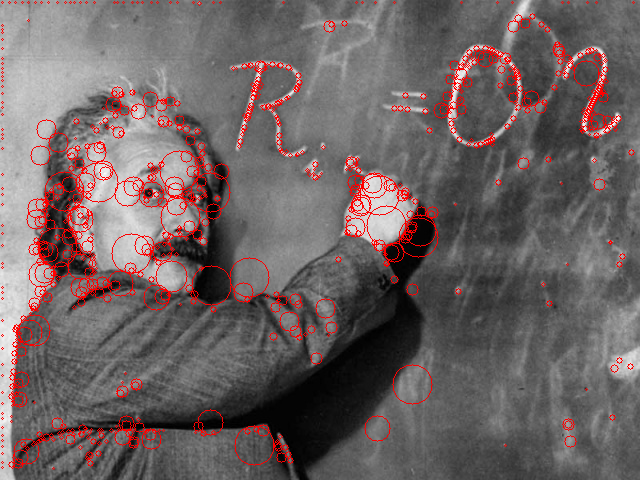 Rik = 0 ?